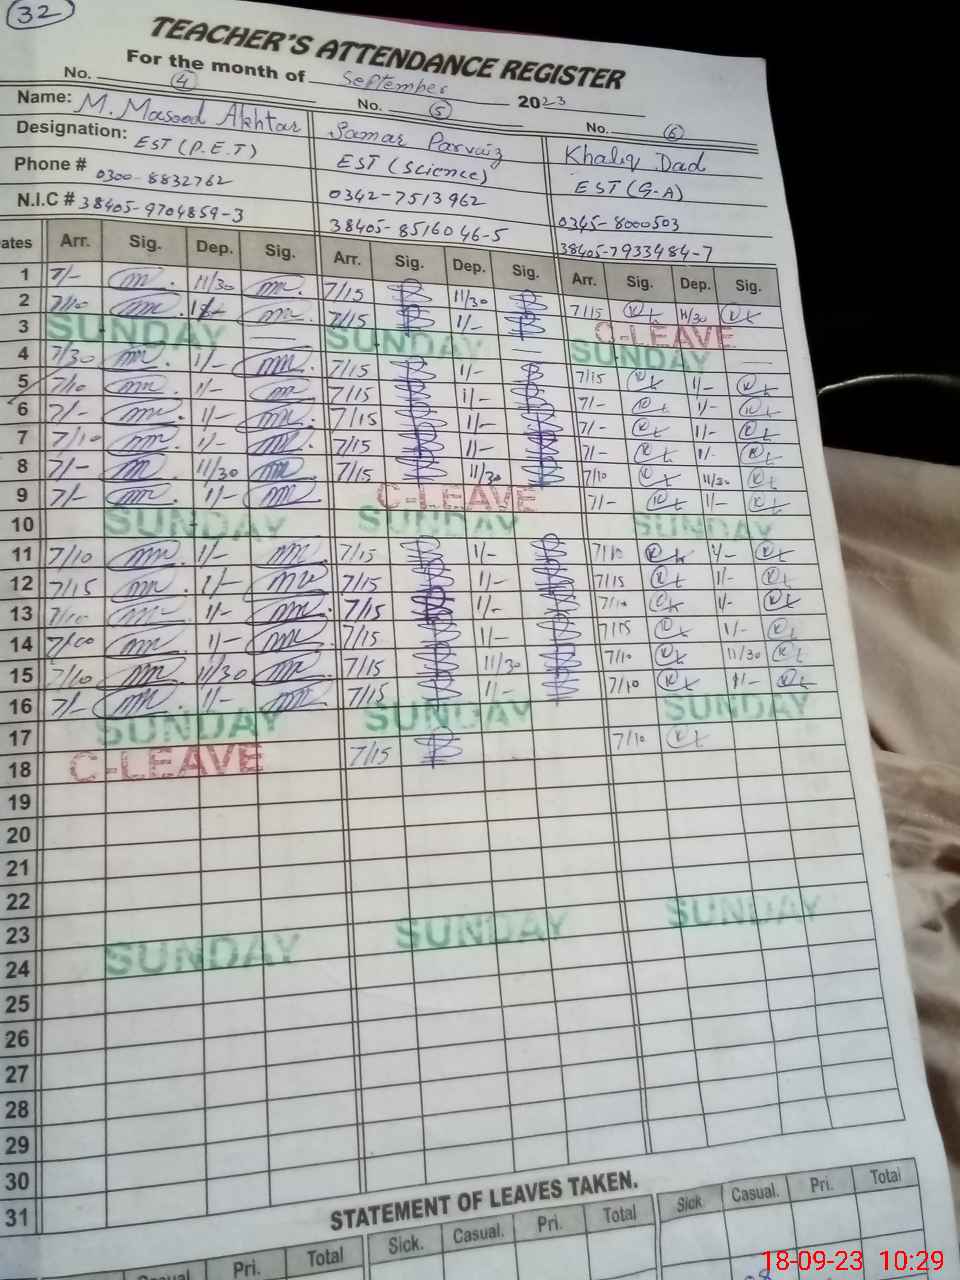 32
TEACHER'S ATTENDANCE REGISTER
For the month of September 2023
No. 4 No. 5 No. 6
Name: M. Masood Akhtar Samar Parvaiz Khaliq Dad
Designation: EST (P.E.T) EST (Science) EST (G-A)
Phone # 0300-8832762 0342-7513962 0345-8000503
N.I.C # 38405-9704859-3 38405-8516046-5 38405-7933484-7
ates Arr. Sig. Dep. Sig. Arr. Sig. Dep. Sig. Arr. Sig. Dep. Sig.
1 7/- 11/30 7/15 11/30 7/15 11/30
2 7/10 1/- 7/15 1/- C-LEAVE
3 SUNDAY SUNDAY SUNDAY
4 7/30 1/- 7/15 1/- 7/15 1/-
5 7/10 1/- 7/15 1/- 7/- 1/-
6 7/- 1/- 7/15 1/- 7/- 1/-
7 7/10 1/- 7/15 1/- 7/- 1/-
8 7/- 11/30 7/15 11/30 7/10 11/30
9 7/- 1/- C-LEAVE 7/- 1/-
10 SUNDAY SUNDAY SUNDAY
11 7/10 1/- 7/15 1/- 7/10 1/-
12 7/15 1/- 7/15 1/- 7/15 1/-
13 7/10 1/- 7/15 1/- 7/10 1/-
14 7/00 1/- 7/15 1/- 7/15 1/-
15 7/10 11/30 7/15 11/30 7/10 11/30
16 7/- 1/- 7/15 1/- 7/10 1/-
17 SUNDAY SUNDAY SUNDAY
18 C-LEAVE 7/15 7/10
19
20
21
22
23
24 SUNDAY SUNDAY SUNDAY
25
26
27
28
29
30
31
STATEMENT OF LEAVES TAKEN.
Pri. Total Sick. Casual. Pri. Total Sick. Casual. Pri. Total
18-09-23 10:29